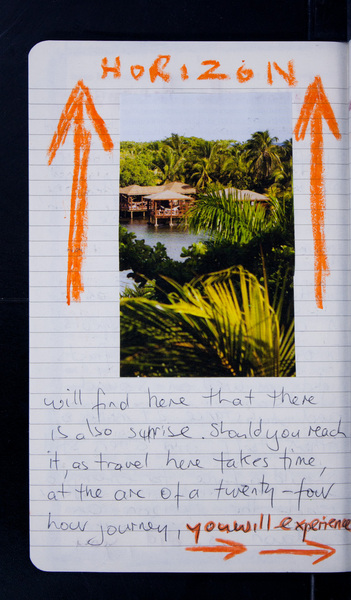 HORIZON
will find here that there
is also suprise. Should you reach
it, as travel here takes time,
at the arc of a twenty-four
hour journey, you will experience